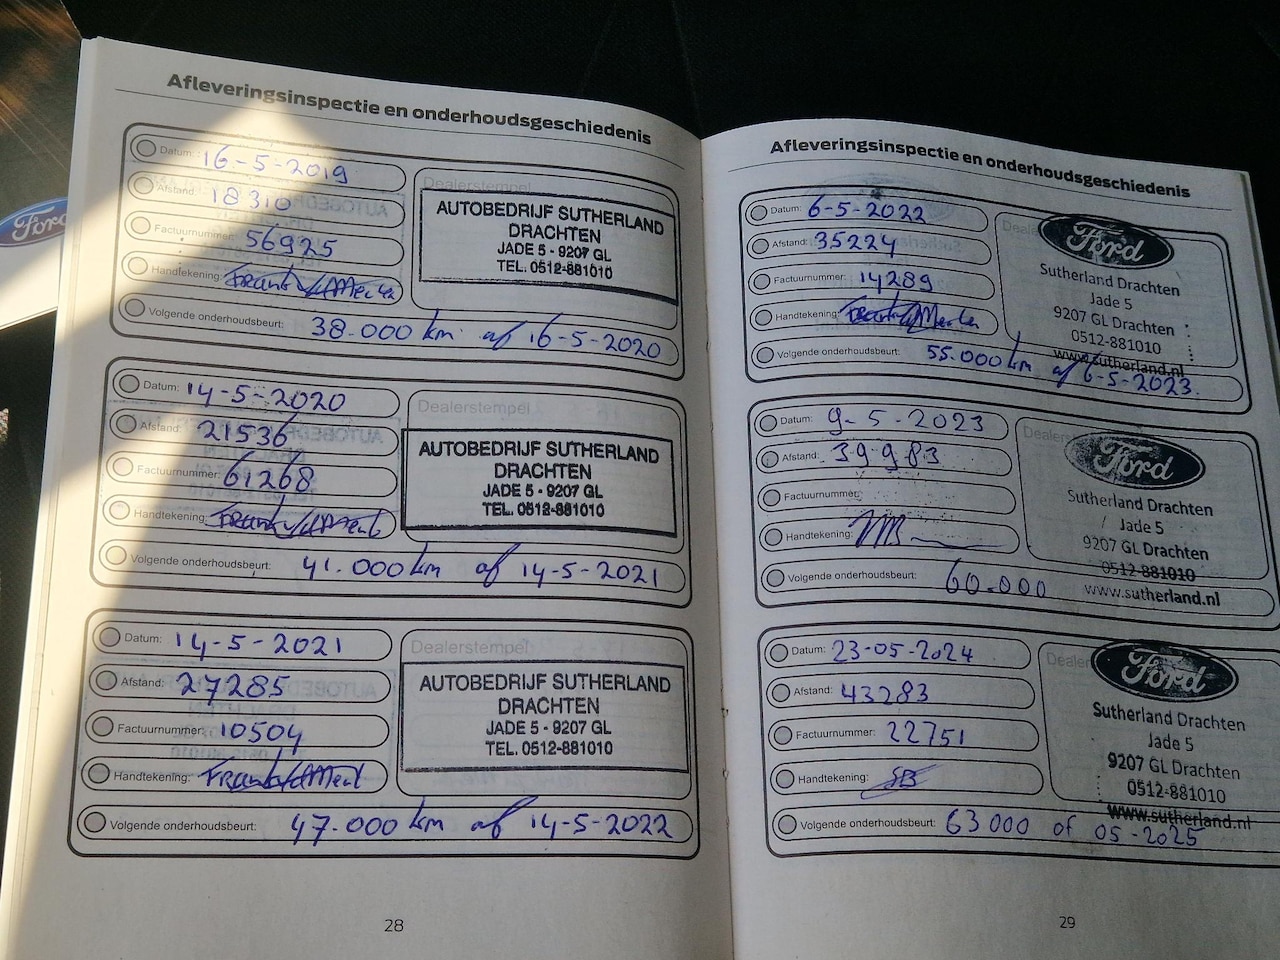 Ford
Afleveringsinspectie en onderhoudsgeschiedenis
Datum: 16-5-2019
Afstand: 18310
Factuurnummer: 56925
Handtekening:
Dealerstempel
AUTOBEDRIJF SUTHERLAND
DRACHTEN
JADE 5 - 9207 GL
TEL. 0512-881010
Volgende onderhoudsbeurt: 38.000 km of 16-5-2020
Datum: 14-5-2020
Afstand: 21536
Factuurnummer: 61268
Handtekening:
Dealerstempel
AUTOBEDRIJF SUTHERLAND
DRACHTEN
JADE 5 - 9207 GL
TEL. 0512-881010
Volgende onderhoudsbeurt: 41.000 km of 14-5-2021
Datum: 14-5-2021
Afstand: 27285
Factuurnummer: 10504
Handtekening:
Dealerstempel
AUTOBEDRIJF SUTHERLAND
DRACHTEN
JADE 5 - 9207 GL
TEL. 0512-881010
Volgende onderhoudsbeurt: 47.000 km of 14-5-2022
28
Afleveringsinspectie en onderhoudsgeschiedenis
Datum: 6-5-2022
Afstand: 35224
Factuurnummer: 14289
Handtekening:
Ford
Sutherland Drachten
Jade 5
9207 GL Drachten
0512-881010
www.sutherland.nl
Volgende onderhoudsbeurt: 55.000 km of 6-5-2023.
Datum: 9-5-2023
Afstand: 39983
Factuurnummer:
Handtekening:
Ford
Sutherland Drachten
Jade 5
9207 GL Drachten
0512-881010
www.sutherland.nl
Volgende onderhoudsbeurt: 60.000
Datum: 23-05-2024
Afstand: 43283
Factuurnummer: 22751
Handtekening: SB
Ford
Sutherland Drachten
Jade 5
9207 GL Drachten
0512-881010
www.sutherland.nl
Volgende onderhoudsbeurt: 63 000 of 05-2025
29